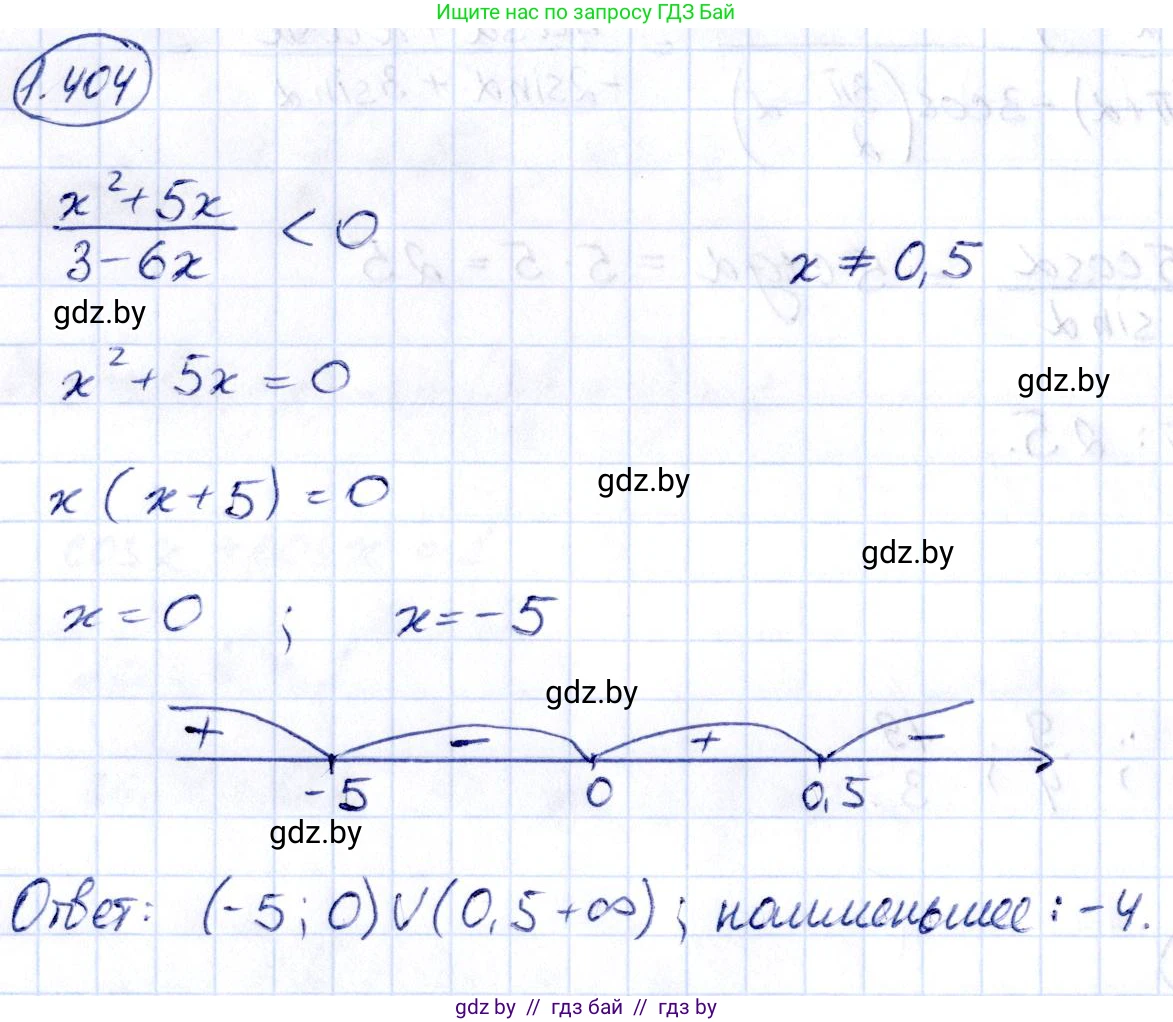 Ищите нас по запросу ГДЗ Бай
1.404
x²+5x / 3-6x < 0
x ≠ 0,5
gdz.by
x² + 5x = 0
gdz.by
x (x+5) = 0
gdz.by
gdz.by
x = 0 ; x = -5
gdz.by
+ - + -
-5 0 0,5
gdz.by
Ответ: (-5; 0) V (0,5 +∞) ; наименьшее: -4.
gdz.by // гдз бай // гдз by